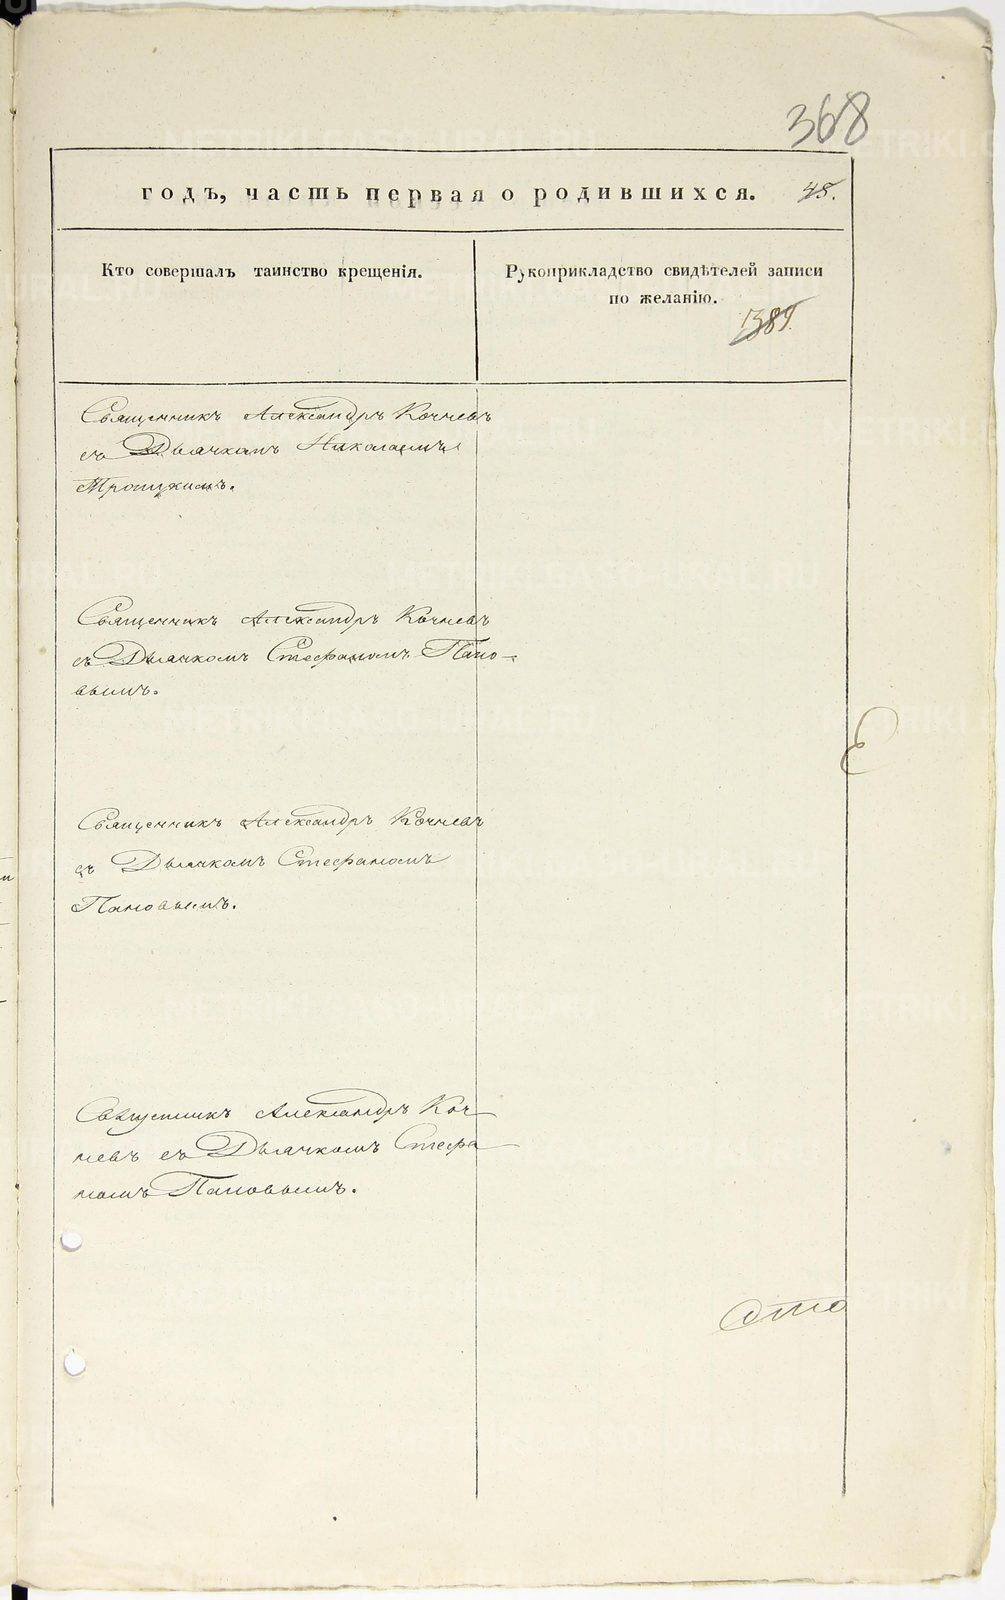 368
годъ, часть первая о родившихся. 45.
Кто совершалъ таинство крещенія.
Рукоприкладство свидѣтелей записи
по желанію.
Священникъ Александръ Кочневъ
съ Дьячкомъ Николаемъ
Троицкимъ.
Священникъ Александръ Кочневъ
съ Дьячкомъ Стефаномъ Пано-
вымъ.
Священникъ Александръ Кочневъ
съ Дьячкомъ Стефаномъ
Пановымъ.
Священникъ Александръ Коч
невъ съ Дьячкомъ Стефа
номъ Пановымъ.
METRIKI.GASO-URAL.RU